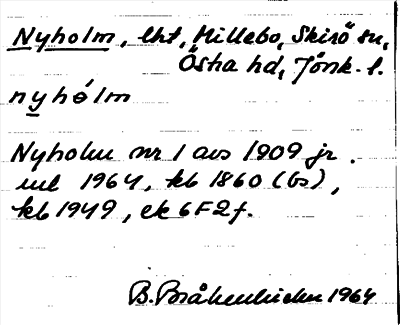 Nyholm, lht, Hillebo, Skirö sn,
Östra hd, Jönk. l.
nyhólm
Nyholm nr 1 avs 1909 jr.
uel 1964, kb 1860 (bs),
kb 1949, ek 6F2f.
B. Bråkenhielm 1964